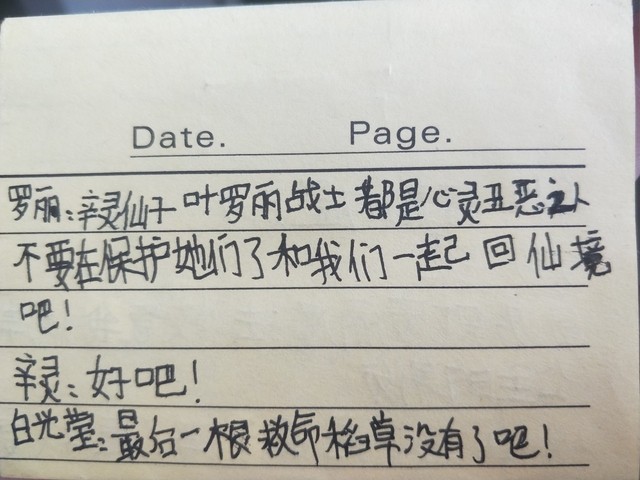 Date. Page.
罗丽:辛灵仙子叶罗丽战士都是心灵丑恶之人
不要在保护她们了和我们一起回仙境
吧!
辛灵:好吧!
白光莹:最后一根救命稻草没有了吧!